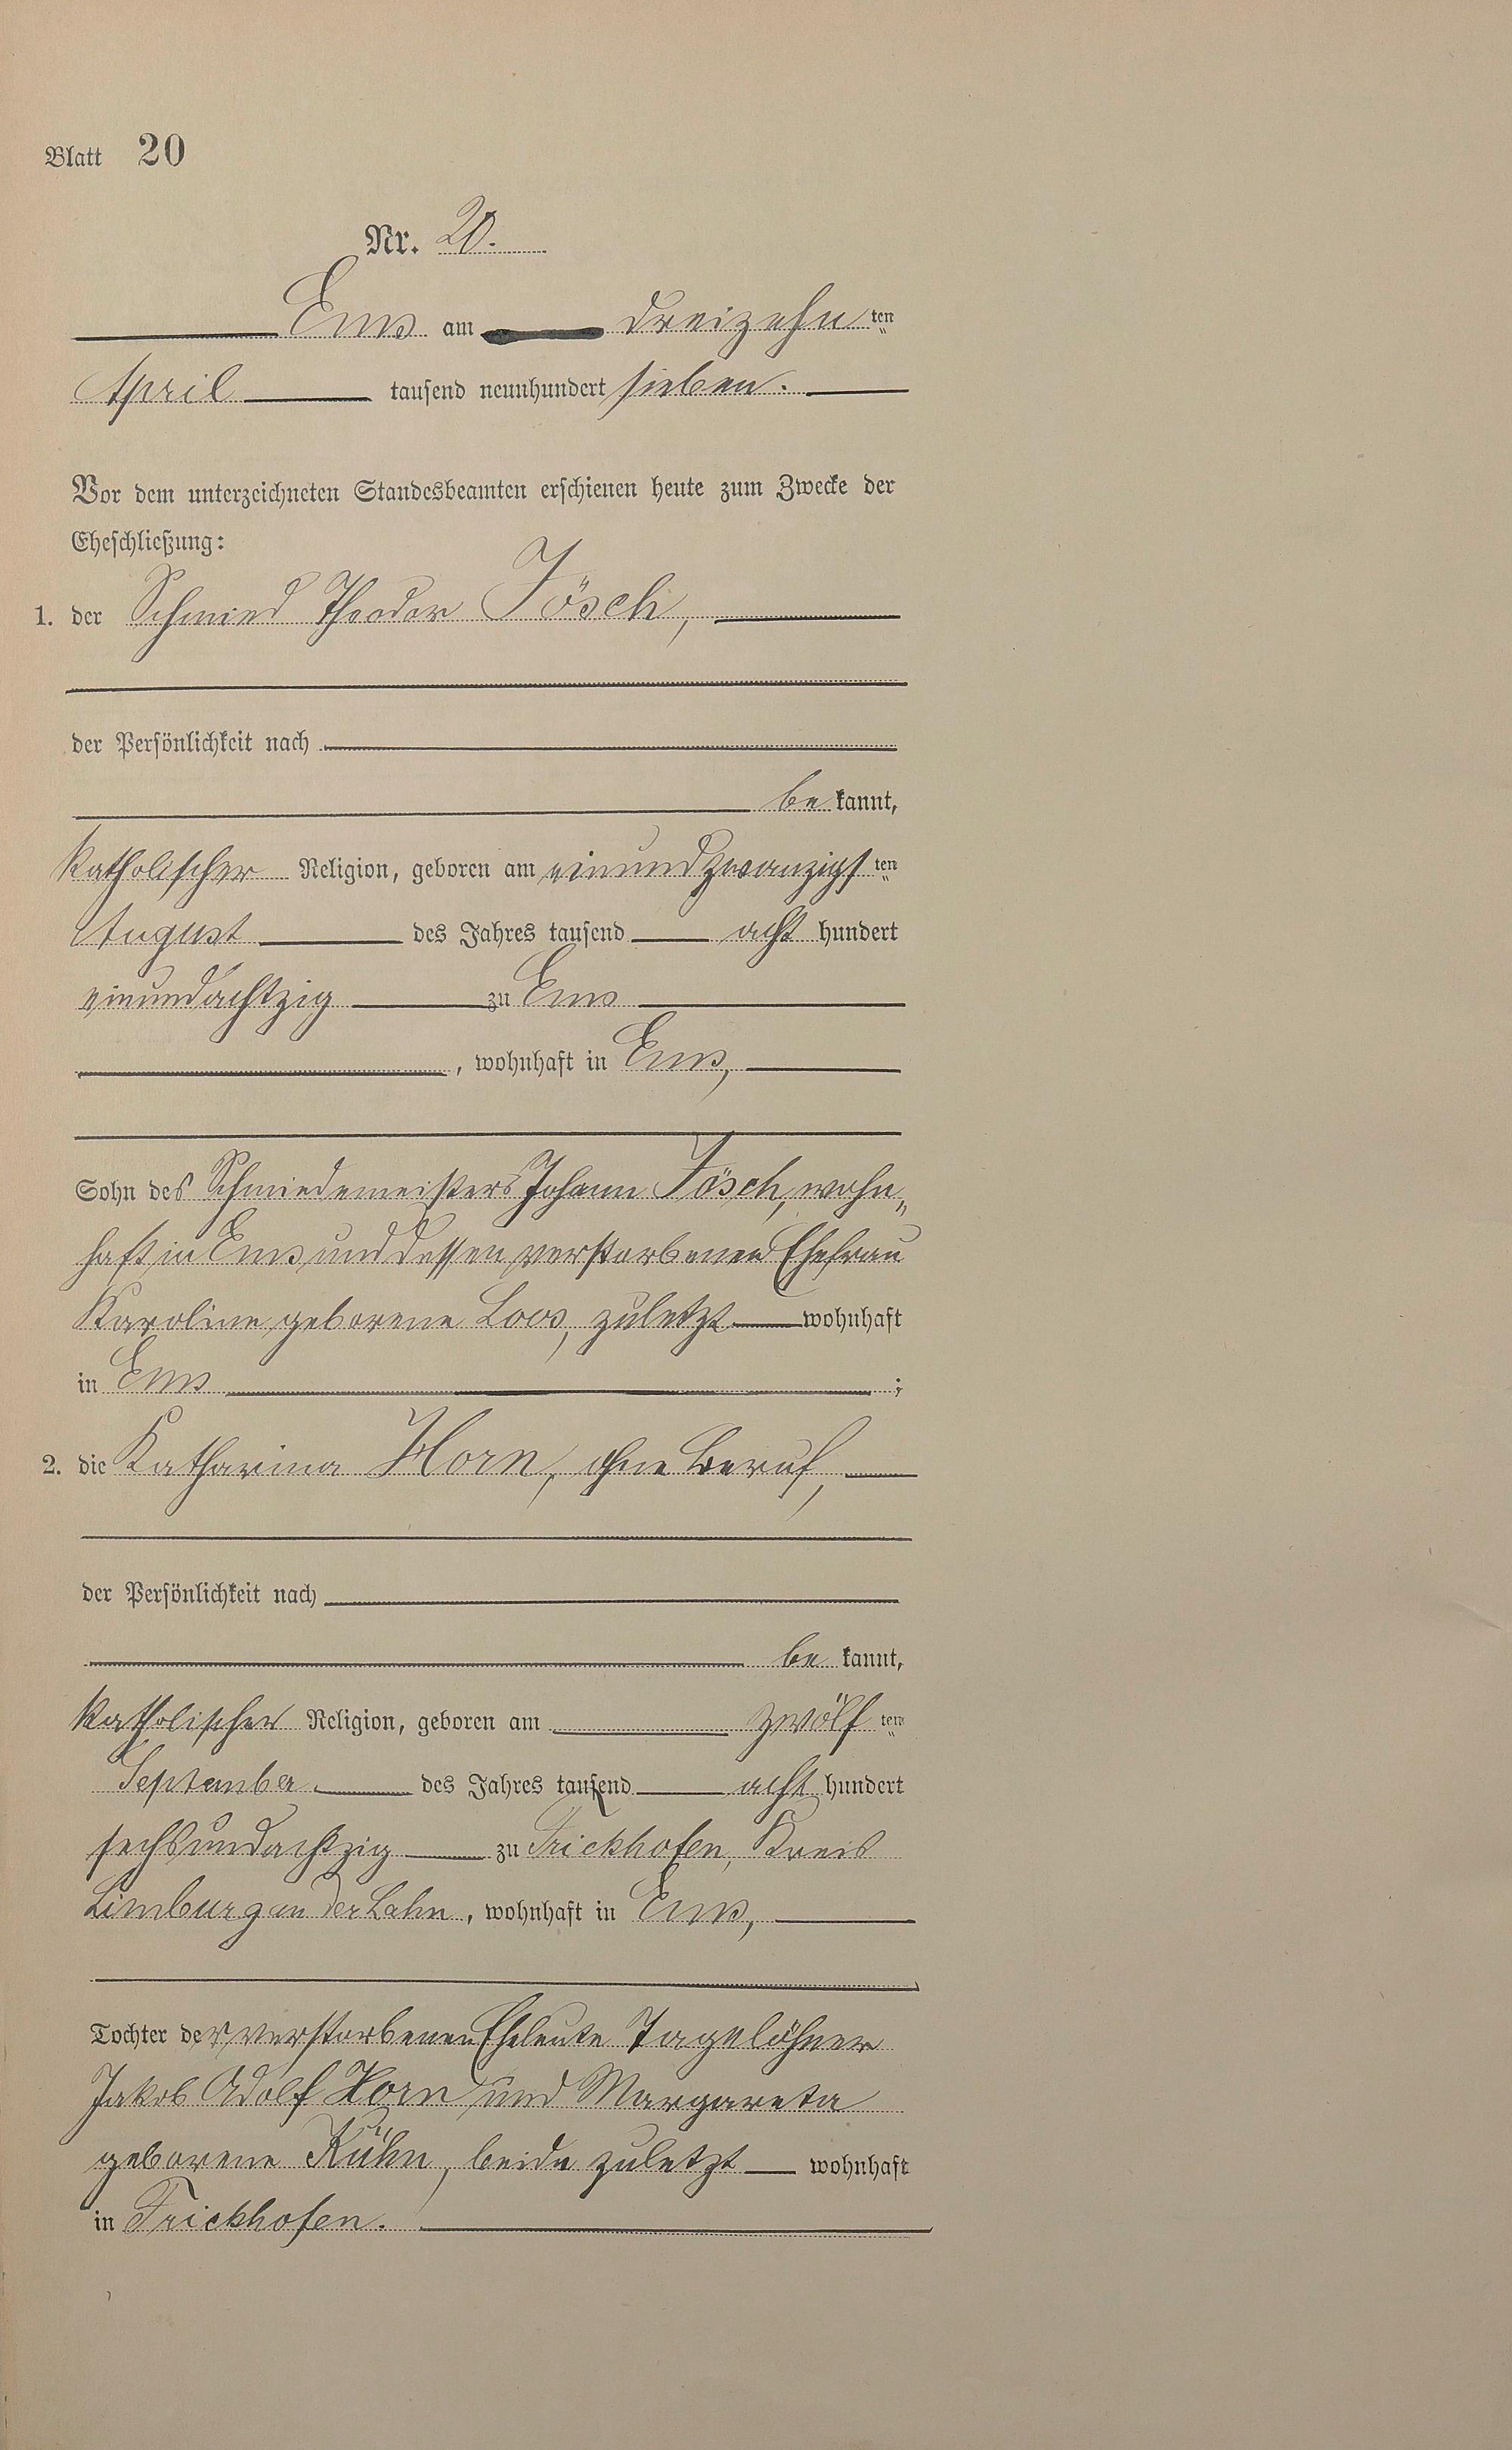 Blatt 20
Nr. 20.
Ems am dreizehnten
April tausend neunhundert sieben.
Vor dem unterzeichneten Standesbeamten erschienen heute zum Zwecke der
Eheschließung:
1. der Schmied Theodor Jösch,
der Persönlichkeit nach
be kannt,
katholischer Religion, geboren am einundzwanzigsten
August des Jahres tausend acht hundert
einundachtzig zu Ems
, wohnhaft in Ems,
Sohn des Schmiedemeisters Johann Jösch, wohn„
haft in Ems und dessen verstorbenen Ehefrau
Karoline geborene Loos, zuletzt wohnhaft
in Ems ;
2. die Katharina Horn, ohne Beruf,
der Persönlichkeit nach
be kannt,
katholischer Religion, geboren am zwölften
September des Jahres tausend acht hundert
sechsundachtzig zu Frickhofen, Kreis
Limburg an der Lahn, wohnhaft in Ems,
Tochter der verstorbenen Eheleute Tagelöhner
Jakob Adolf Horn und Margareta
geborene Kühn, beide zuletzt wohnhaft
in Frickhofen.